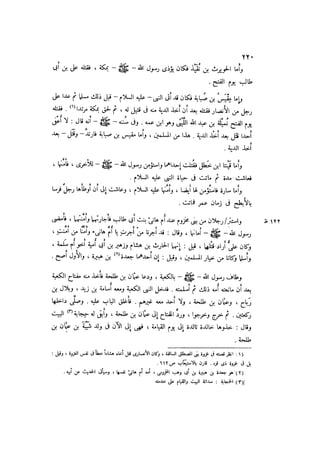 ٢٢٠
وأما الحويرث بن نُقَيْذ فكان يؤذى رسول الله — ﷺ — بمكة ، فقتله على بن أبى
طالب يوم الفتح .
وإما مِقْيَسُ بن صُبابة فكان قد أتى النبى — عليه السلام — قبل ذلك مسلما ثم عدا على
رجل من الأنصار فقتله بعد أن أخذ الدية منه فى قتيل له ، ثم لحق بمكة مرتدا(١) . فقتله
يوم الفتح نُمَيْلَة بن عبد الله اللَّيْثِى وهو ابن عمه . وفى سننه — ﷺ — أنه قال : لا أعْفِى
أحدا قَتَل بعد أَخْذ الدية . هذا من المسلمين ، وأما مقيس بن صبابة فارتدَّ — وقَتَل — بعد
أخذ الدية .
وأما قَيْنتا ابن خَطَل فقُتلت إحداهما واستؤمن رسول الله — ﷺ — للأخرى ، فأمَّنها ،
فعاشت مدة ثم ماتت فى حياة النبى عليه السلام .
وأما سارة فاستُؤمن لها أيضا ، وأمَّنها عليه السلام ، وعاشت إلى أن أوطأها رجل فرسا
بالأبطح فى زمان عمر فماتت .
١٢٢ ظ
واستتر رجلان من بنى مخزوم عند أم هانئ بنت أبى طالب فأجارتهما وأمَّنتهما ، فأمضى
رسول الله — ﷺ — أمانها ، وقال : قد أجرنا من أجرتِ يا أم هانئ ، وأمَّنَّا من أمَّنتِ ،
وكان علىٌّ أراد قتْلهما ، قيل : إنهما الحارث بن هشام وزهير بن أبى أمية أخو أم سلمة ،
وأسلما وكانا من خيار المسلمين ، وقيل : إن أحدهما جعدة(٢) بن هبيرة ، والأول أصح .
وطاف رسول الله — ﷺ — بالكعبة ، ودعا عثمان بن طلحة فأخذ منه مفتاح الكعبة
بعد أن مانعته أمه ذلك ثم أسلمته . فدخل النبى الكعبة ومعه أسامة بن زيد ، وبلال بن
رباح ، وعثمان بن طلحة ، ولا أحد معه غيرهم . فأغلق الباب عليه . وصلَّى داخلها
ركعتين . ثم خرج وخرجوا ، وردَّ المفتاح إلى عثمان بن طلحة ، وأبقى له حِجابة(٣) البيت
وقال : خذوها خالدة تالدة إلى يوم القيامة ، فهى إلى الآن فى ولد شَيْبة بن عثمان بن
طلحة .
(٢) هو جعدة بن هبيرة بن أبى وهب المخزومى ، أمه أم هانئ نفسها ، وسيأتى الحديث عن أبيه .
(٣) الحجابة : سدانة البيت والقيام على خدمته